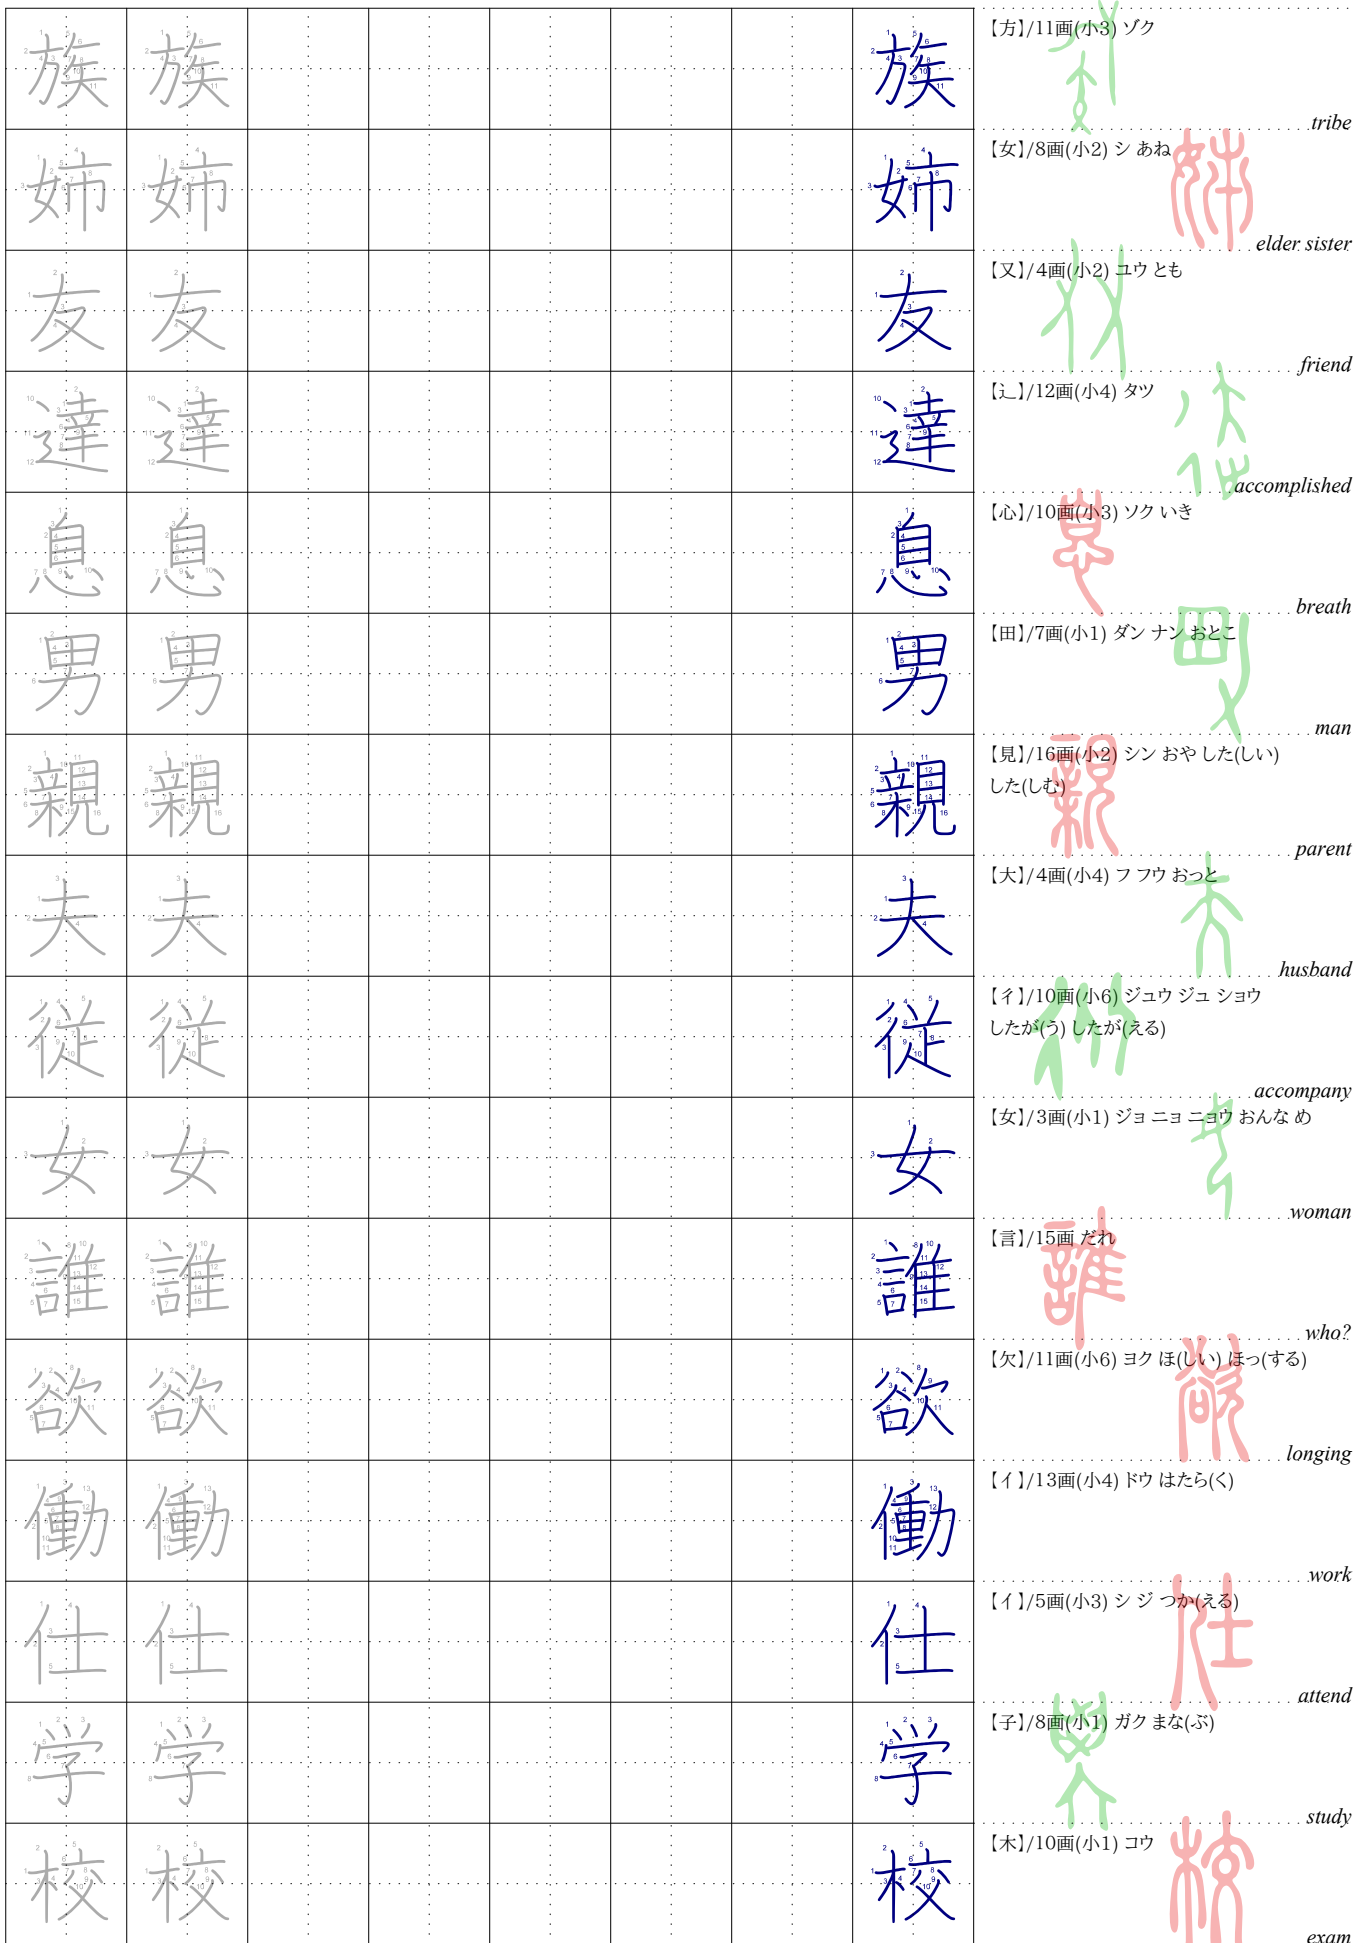 族 族 族 【方】/11画(小3) ゾク
tribe
姉 姉 姉 【女】/8画(小2) シ あね
elder sister
友 友 友 【又】/4画(小2) ユウ とも
friend
達 達 達 【辶】/12画(小4) タツ
accomplished
息 息 息 【心】/10画(小3) ソク いき
breath
男 男 男 【田】/7画(小1) ダン ナン おとこ
man
親 親 親 【見】/16画(小2) シン おや した(しい)
した(しむ)
parent
夫 夫 夫 【大】/4画(小4) フ フウ おっと
husband
従 従 従 【彳】/10画(小6) ジュウ ジュ ショウ
したが(う) したが(える)
accompany
女 女 女 【女】/3画(小1) ジョ ニョ ニョウ おんな め
woman
誰 誰 誰 【言】/15画 だれ
who?
欲 欲 欲 【欠】/11画(小6) ヨク ほ(しい) ほっ(する)
longing
働 働 働 【イ】/13画(小4) ドウ はたら(く)
work
仕 仕 仕 【イ】/5画(小3) シ ジ つか(える)
attend
学 学 学 【子】/8画(小1) ガク まな(ぶ)
study
校 校 校 【木】/10画(小1) コウ
exam